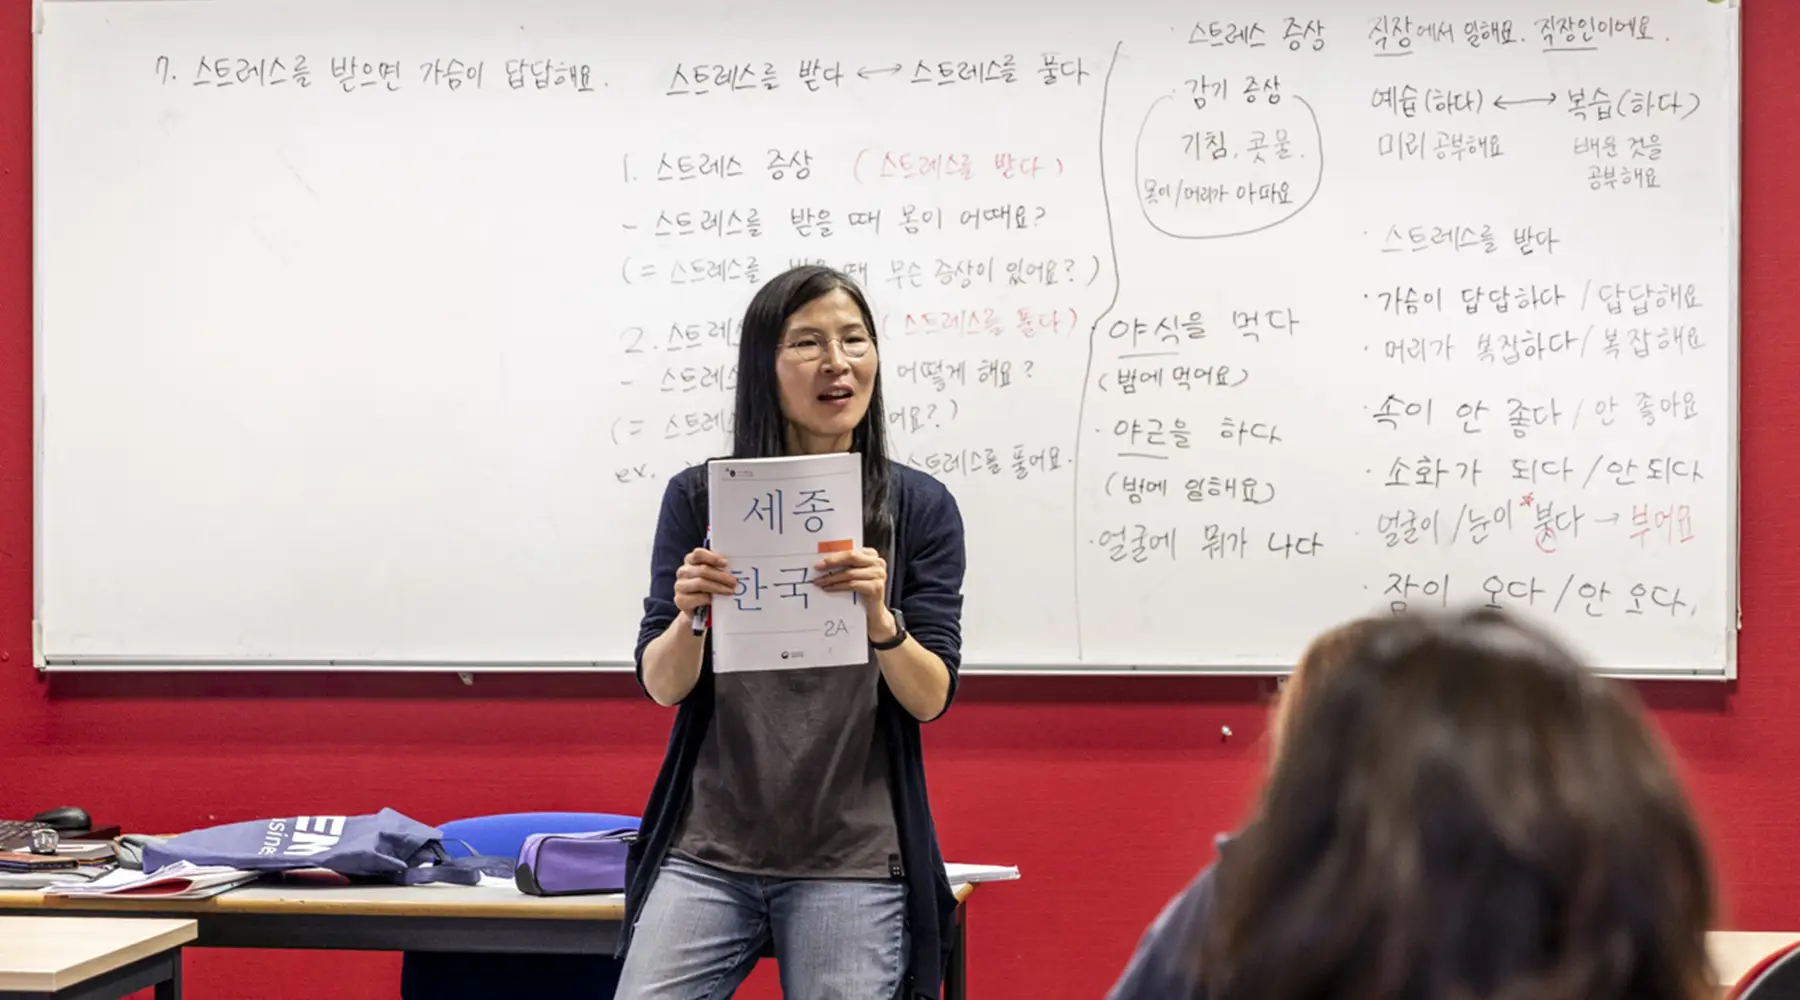 7. 스트레스를 받으면 가슴이 답답해요.
스트레스를 받다 ↔ 스트레스를 풀다
1. 스트레스 증상 (스트레스를 받다)
- 스트레스를 받을 때 몸이 어때요?
(= 스트레스를 때 무슨 증상이 있어요?)
2. 스트레스 (스트레스를 풀다)
- 스트레스 어떻게 해요?
(= 스트레스 어요?)
ex. 스트레스를 풀어요.
· 스트레스 증상
· 감기 증상
기침, 콧물,
목이/머리가 아파요
야식을 먹다
(밤에 먹어요)
· 야근을 하다
(밤에 일해요)
· 얼굴에 뭐가 나다
직장에서 일해요. 직장인이에요.
예습(하다) ↔ 복습(하다)
미리 공부해요
배운 것을
공부해요
· 스트레스를 받다
· 가슴이 답답하다 / 답답해요
· 머리가 복잡하다 / 복잡해요
· 속이 안 좋다 / 안 좋아요
· 소화가 되다 / 안 되다
· 얼굴이 / 눈이 *붓다 → 부어요
· 잠이 오다 / 안 오다.
세종
한국
2A
EM